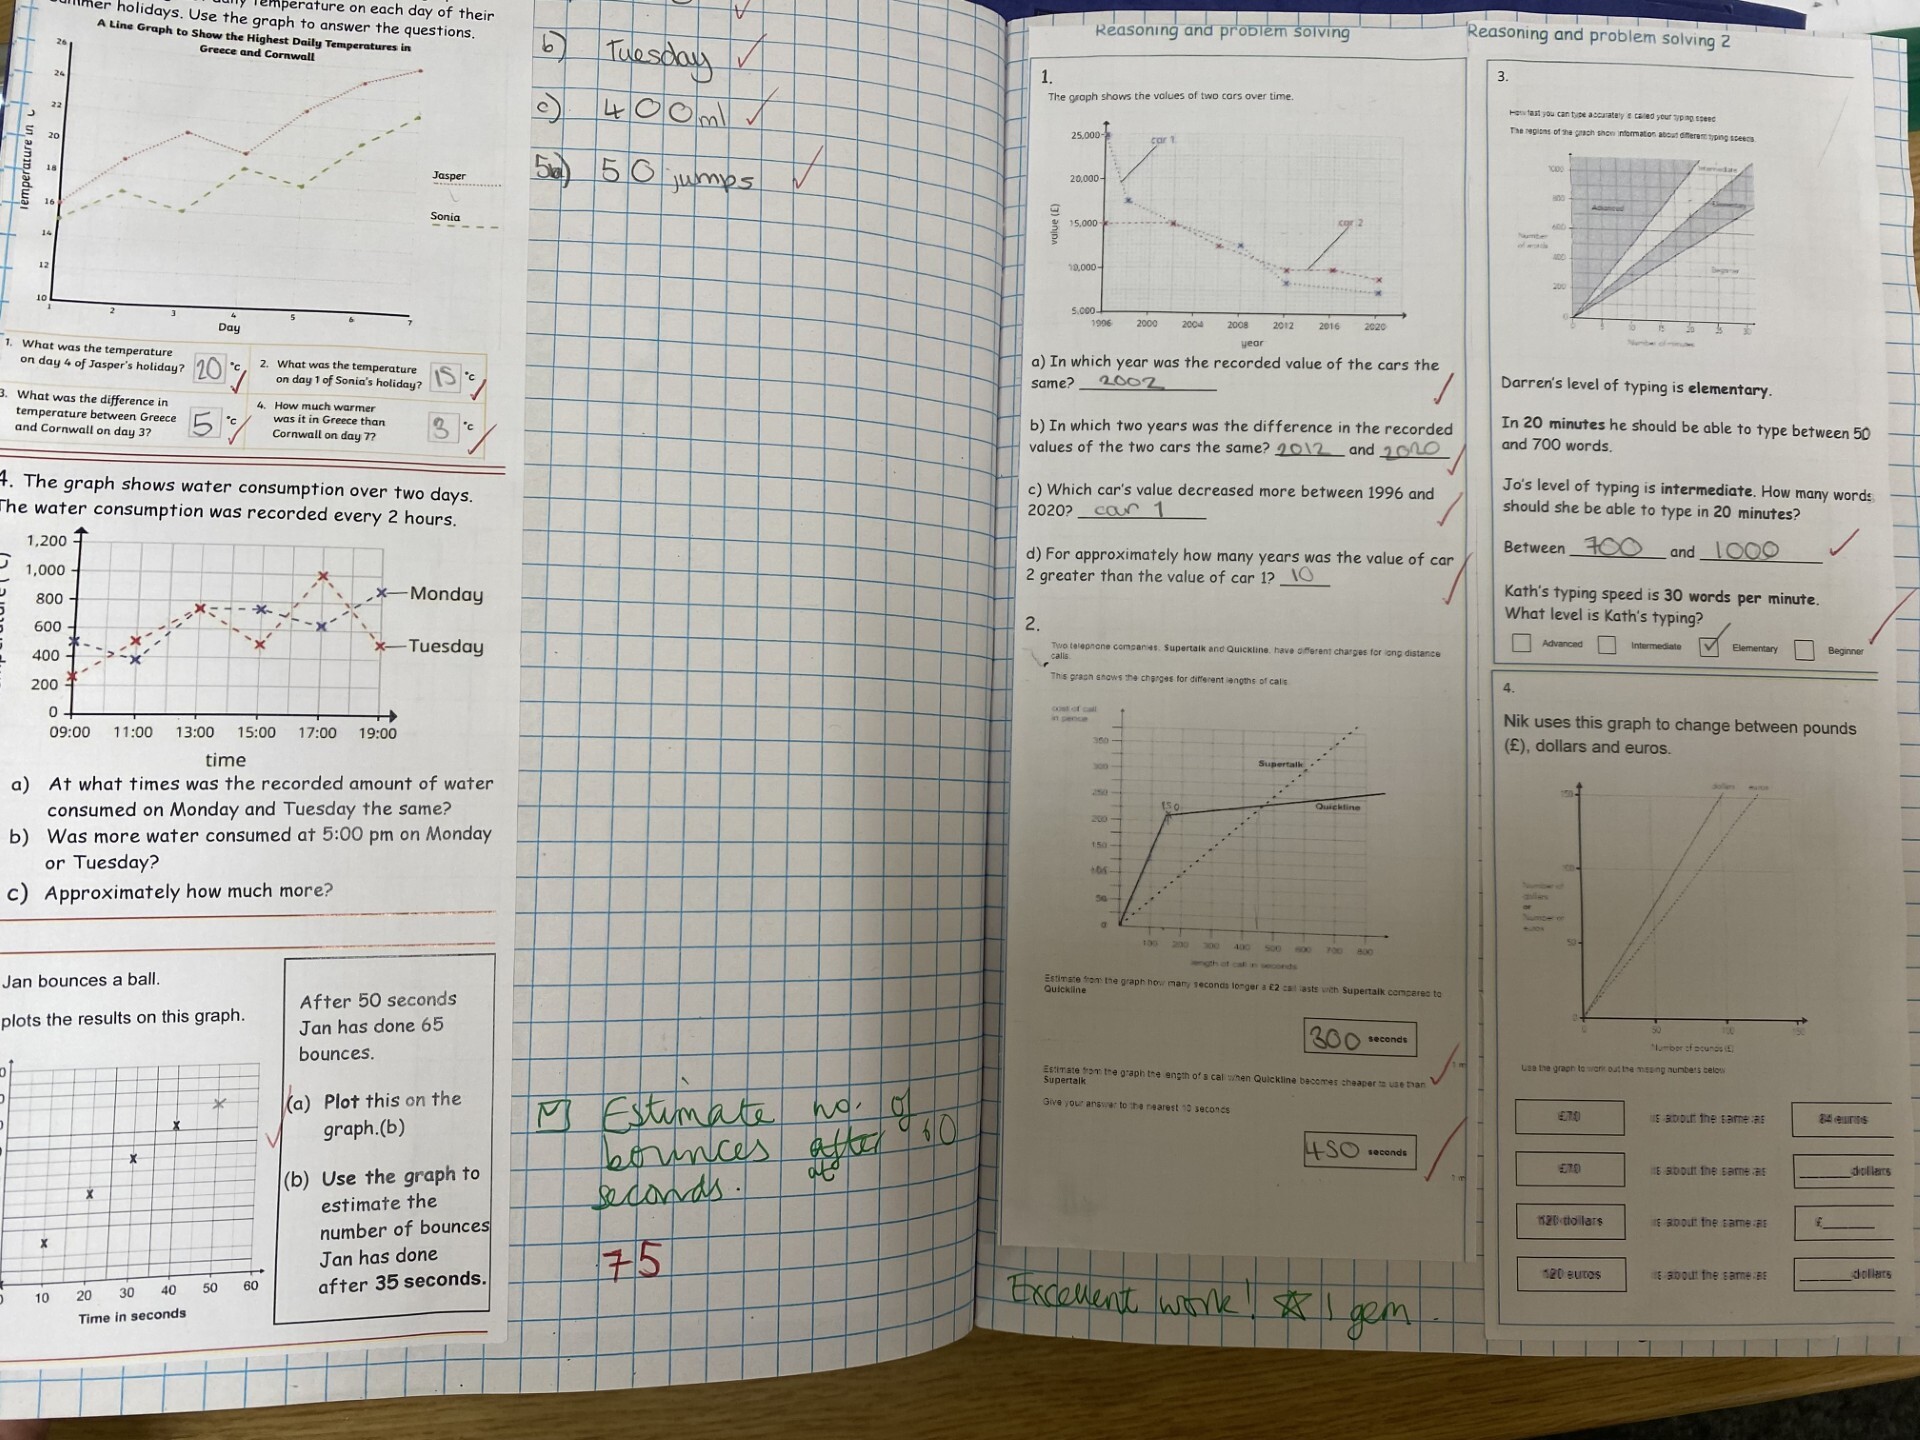 daily Temperature on each day of their
summer holidays. Use the graph to answer the questions.
A Line Graph to Show the Highest Daily Temperatures in
Greece and Cornwall
26
24
22
20
18
16
14
12
10
Temperature in
Jasper
Sonia
1 2 3 4 5 6 7
Day
1. What was the temperature
on day 4 of Jasper's holiday? 20 °C
2. What was the temperature
on day 1 of Sonia's holiday? 15 °C
3. What was the difference in
temperature between Greece
and Cornwall on day 3? 5 °C
4. How much warmer
was it in Greece than
Cornwall on day 7? 3 °C
4. The graph shows water consumption over two days.
The water consumption was recorded every 2 hours.
1,200
1,000
800
600
400
200
0
Monday
Tuesday
09:00 11:00 13:00 15:00 17:00 19:00
time
a) At what times was the recorded amount of water
consumed on Monday and Tuesday the same?
b) Was more water consumed at 5:00 pm on Monday
or Tuesday?
c) Approximately how much more?
Jan bounces a ball.
plots the results on this graph.
10 20 30 40 50 60
Time in seconds
After 50 seconds
Jan has done 65
bounces.
(a) Plot this on the
graph.(b)
(b) Use the graph to
estimate the
number of bounces
Jan has done
after 35 seconds.
b) Tuesday
c) 400ml
5b) 50 jumps
Estimate no. of
bounces after 60
at
seconds.
75
Reasoning and problem solving
1.
The graph shows the values of two cars over time.
25,000
20,000
15,000
10,000
5,000
value (£)
car 1
car 2
1996 2000 2004 2008 2012 2016 2020
year
a) In which year was the recorded value of the cars the
same? 2002
b) In which two years was the difference in the recorded
values of the two cars the same? 2012 and 2020
c) Which car's value decreased more between 1996 and
2020? car 1
d) For approximately how many years was the value of car
2 greater than the value of car 1? 10
2.
Two telephone companies, Supertalk and Quickline, have different charges for long distance
calls.
This graph shows the charges for different lengths of calls.
cost of call
in pence
350
300
250
200
150
100
50
0
150
Supertalk
Quickline
100 200 300 400 500 600 700 800
length of call in seconds
Estimate from the graph how many seconds longer a £2 call lasts with Supertalk compared to
Quickline
300 seconds
1 m
Estimate from the graph the length of a call when Quickline becomes cheaper to use than
Supertalk
Give your answer to the nearest 10 seconds
450 seconds
1 m
Excellent work! 1 gem.
Reasoning and problem solving 2
3.
How fast you can type accurately is called your typing speed
The regions of the graph show information about different typing speeds
1000
800
600
400
200
0
Number
of words
Advanced
Intermediate
Elementary
Beginner
0 5 10 15 20 25 30
Number of minutes
Darren's level of typing is elementary.
In 20 minutes he should be able to type between 50
and 700 words.
Jo's level of typing is intermediate. How many words
should she be able to type in 20 minutes?
Between 700 and 1000
Kath's typing speed is 30 words per minute.
What level is Kath's typing?
Advanced Intermediate Elementary Beginner
4.
Nik uses this graph to change between pounds
(£), dollars and euros.
dollars euros
150
100
50
0
Number of
dollars
or
Number of
euros
0 50 100 150
Number of pounds (£)
Use the graph to work out the missing numbers below
£70 is about the same as 84 euros
£70 is about the same as dollars
120 dollars is about the same as £
120 euros is about the same as dollars